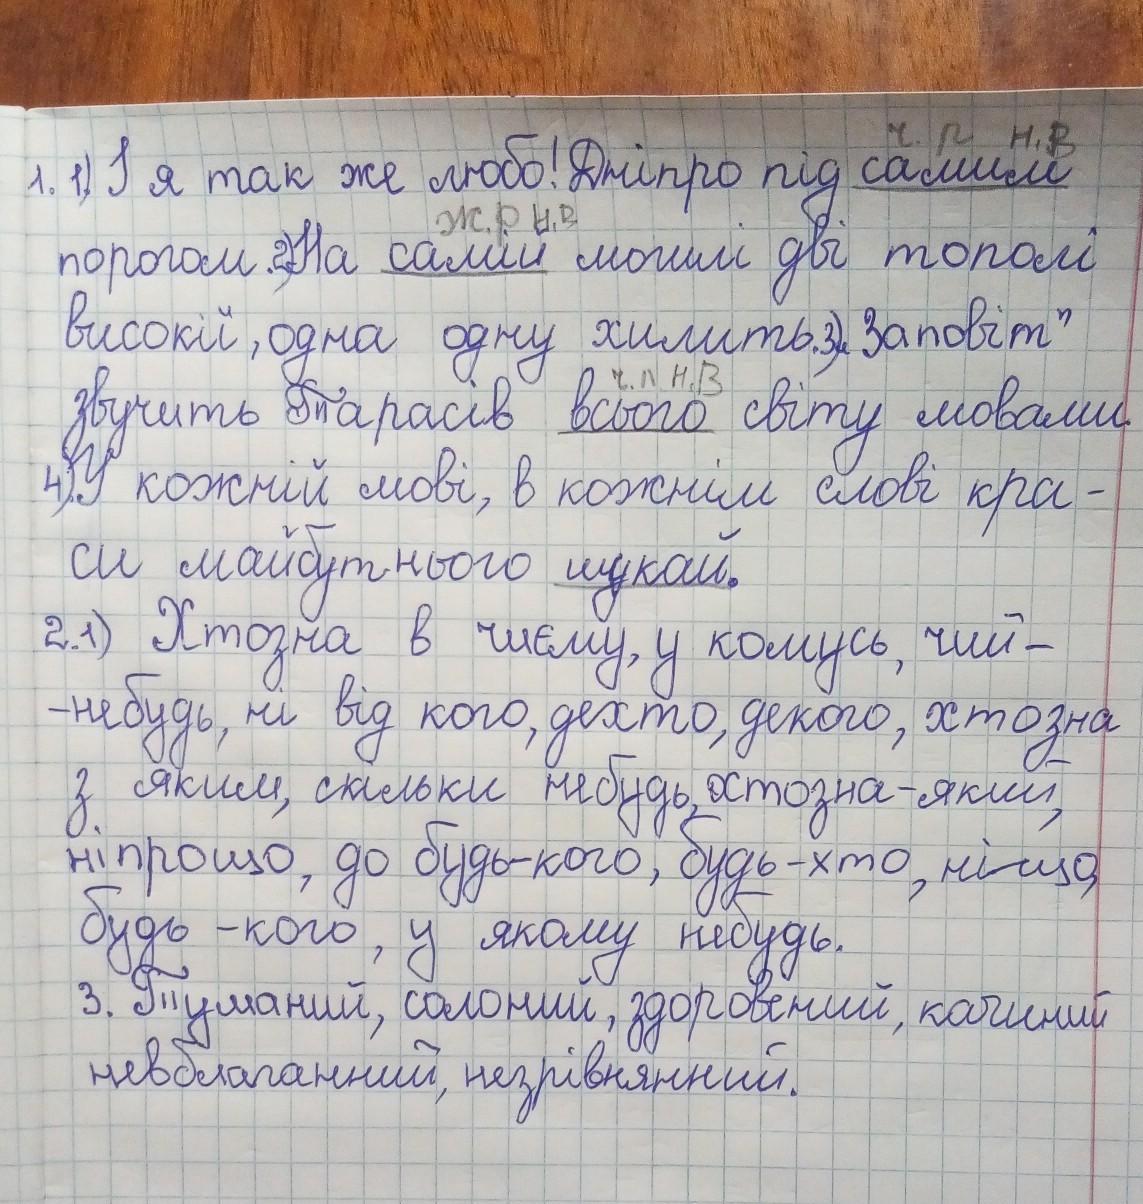 ч. п н.в
1. 1) І я так же любо! Дніпро під самим
ж.р н.в
порогом. 2) На самій могилі дві тополі
високії, одна одну хилить. 3) „Заповіт"
ч.п н.в
звучить Тарасів всього світу мовами.
4) У кожній мові, в кожнім слові кра-
си майбутнього шукай.
2.1) Хтозна в чиєму, у комусь, чий-
-небудь, ні від кого, дехто, декого, хтозна
з яким, скільки небудь, хтозна-який,
ніпрощо, до будь-кого, будь-хто, ні-що,
будь -кого, у якому небудь.
3. Туманий, солоний, здоровений, качиний
невблаганний, незрівнянний.